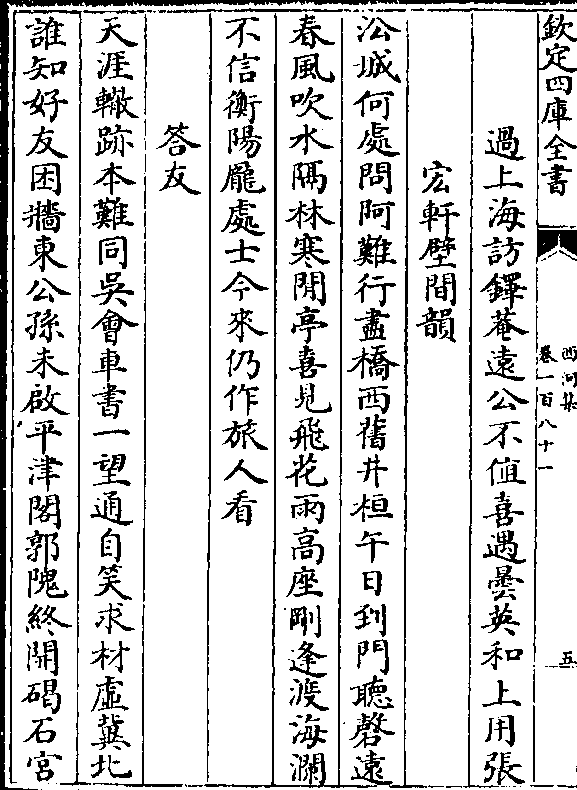 欽定四庫全書
西河集
卷一百八十一
五
過上海訪鐸菴遠公不值喜遇曇英和上用張
宏軒壁間韻
㳂城何處問阿難行盡橋西舊井桓午日到門聽磬遠
春風吹水隔林寒閒亭喜見飛花雨高座剛逢渡海瀾
不信衡陽龐處士今來仍作旅人看
答友
天涯轍跡本難同吳會車書一望通自笑求材虛冀北
誰知好友困牆東公孫未啟平津閣郭隗終開碣石宮